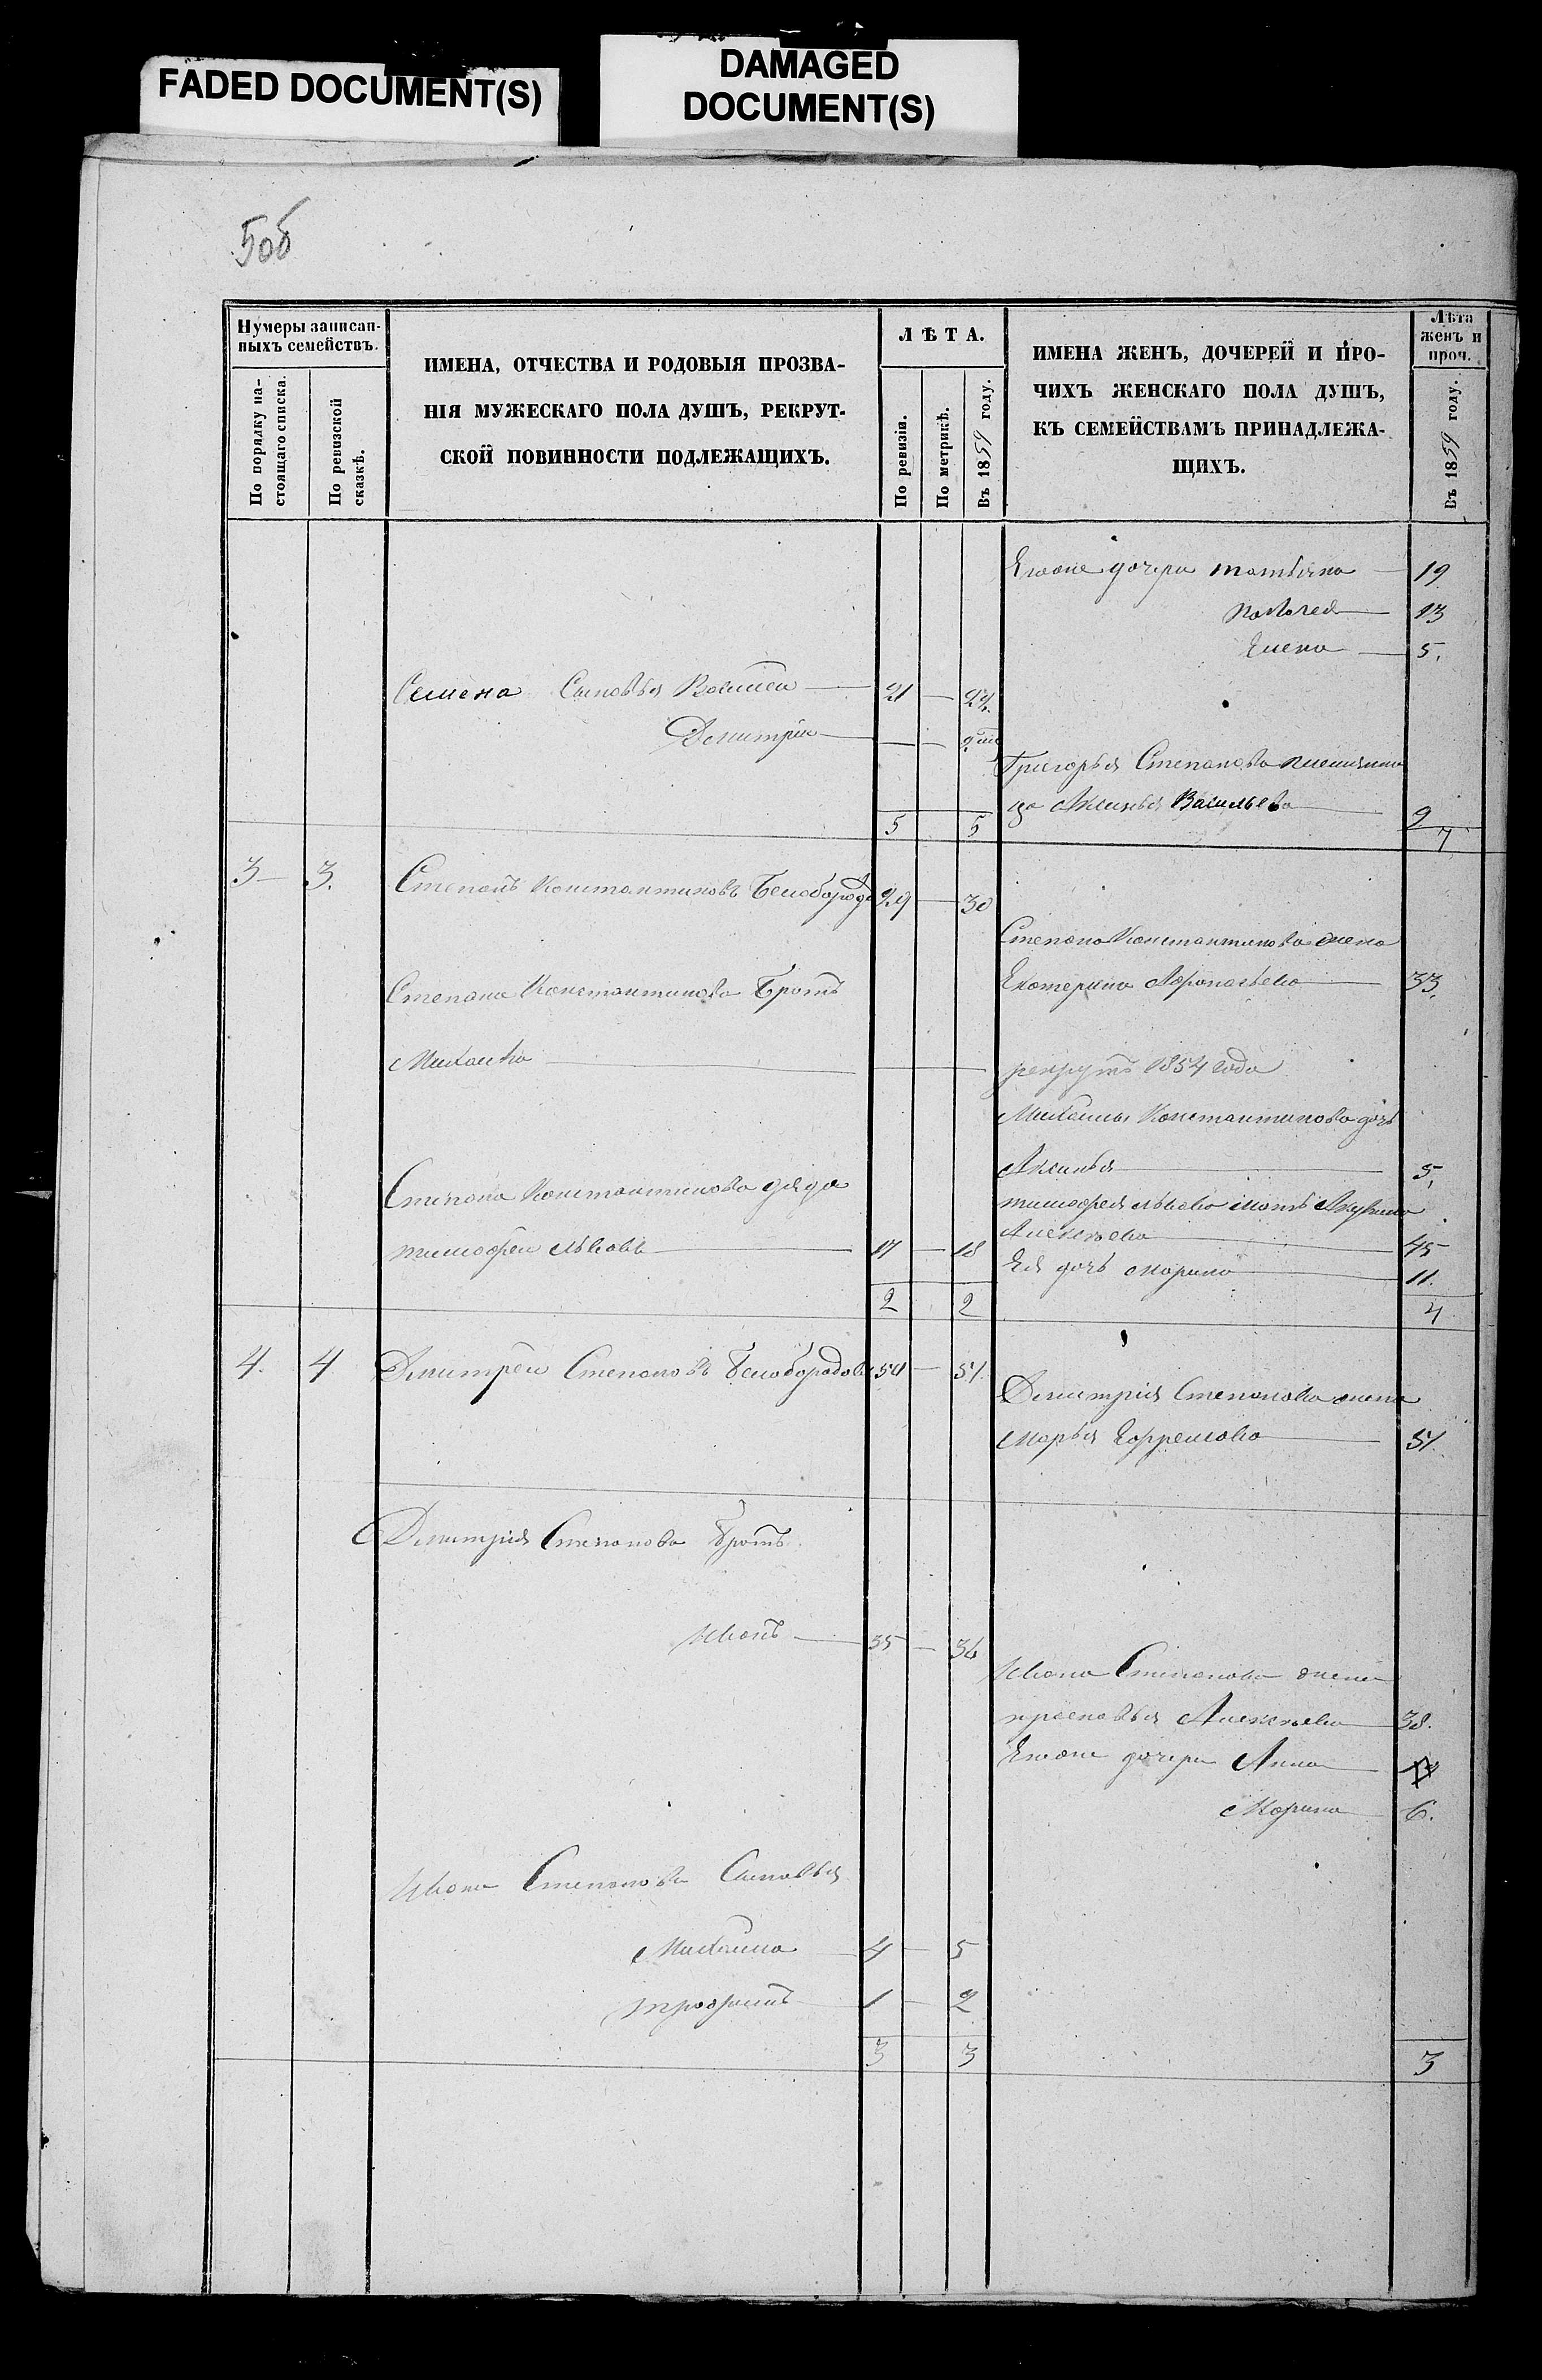 FADED DOCUMENT(S)
DAMAGED
DOCUMENT(S)
5об
Нумеры записан-
ныхъ семействъ.
По порядку на-
стоящаго списка.
По ревизской
сказкѣ.
ИМЕНА, ОТЧЕСТВА И РОДОВЫЯ ПРОЗВА-
НІЯ МУЖЕСКАГО ПОЛА ДУШЪ, РЕКРУТ-
СКОЙ ПОВИННОСТИ ПОДЛЕЖАЩИХЪ.
ЛѢТА.
По ревизіи.
По метрикѣ.
Въ 1859 году.
ИМЕНА ЖЕНЪ, ДОЧЕРЕЙ И ПРО-
ЧИХЪ ЖЕНСКАГО ПОЛА ДУШЪ,
КЪ СЕМЕЙСТВАМЪ ПРИНАДЛЕЖА-
ЩИХЪ.
Лѣта
женъ и
проч.
Въ 1859 году.
дочери 19
13
Елена 5.
Семена Сыновья 21 — 22.
Дмитрій — —
Григорья Степанова племянни
ца Аксинья Васильева 2
5 5 7
3 — 3. Степанъ Константиновъ Белобородо 29 — 30
Степана Константинова жена
Екатерина Афонасьева 33.
Степана Константинова Братъ
Михайла — рекрутъ 1854 года
Михайлы Константинова дочь
Аксинья 5,
Степана Константинова дядя
тимофея львова мать Акулина
Алексѣева 45
тимофеи львовъ 17 — 18
Ея дочь марина 11.
2 2 4
4. 4 Дмитрей Степановъ Белобородовъ 50 — 51.
Дмитрія Степанова жена
марья Ефремова 51.
Дмитрія Степанова Братъ
Иванъ 35 — 36
Ивана Степанова жена
прасковья Алексѣева 38.
дочери Анна
Марина 6.
Ивана Степанова Сыновья
Михайла 4 — 5
трофимъ 1 — 2
3 3 3